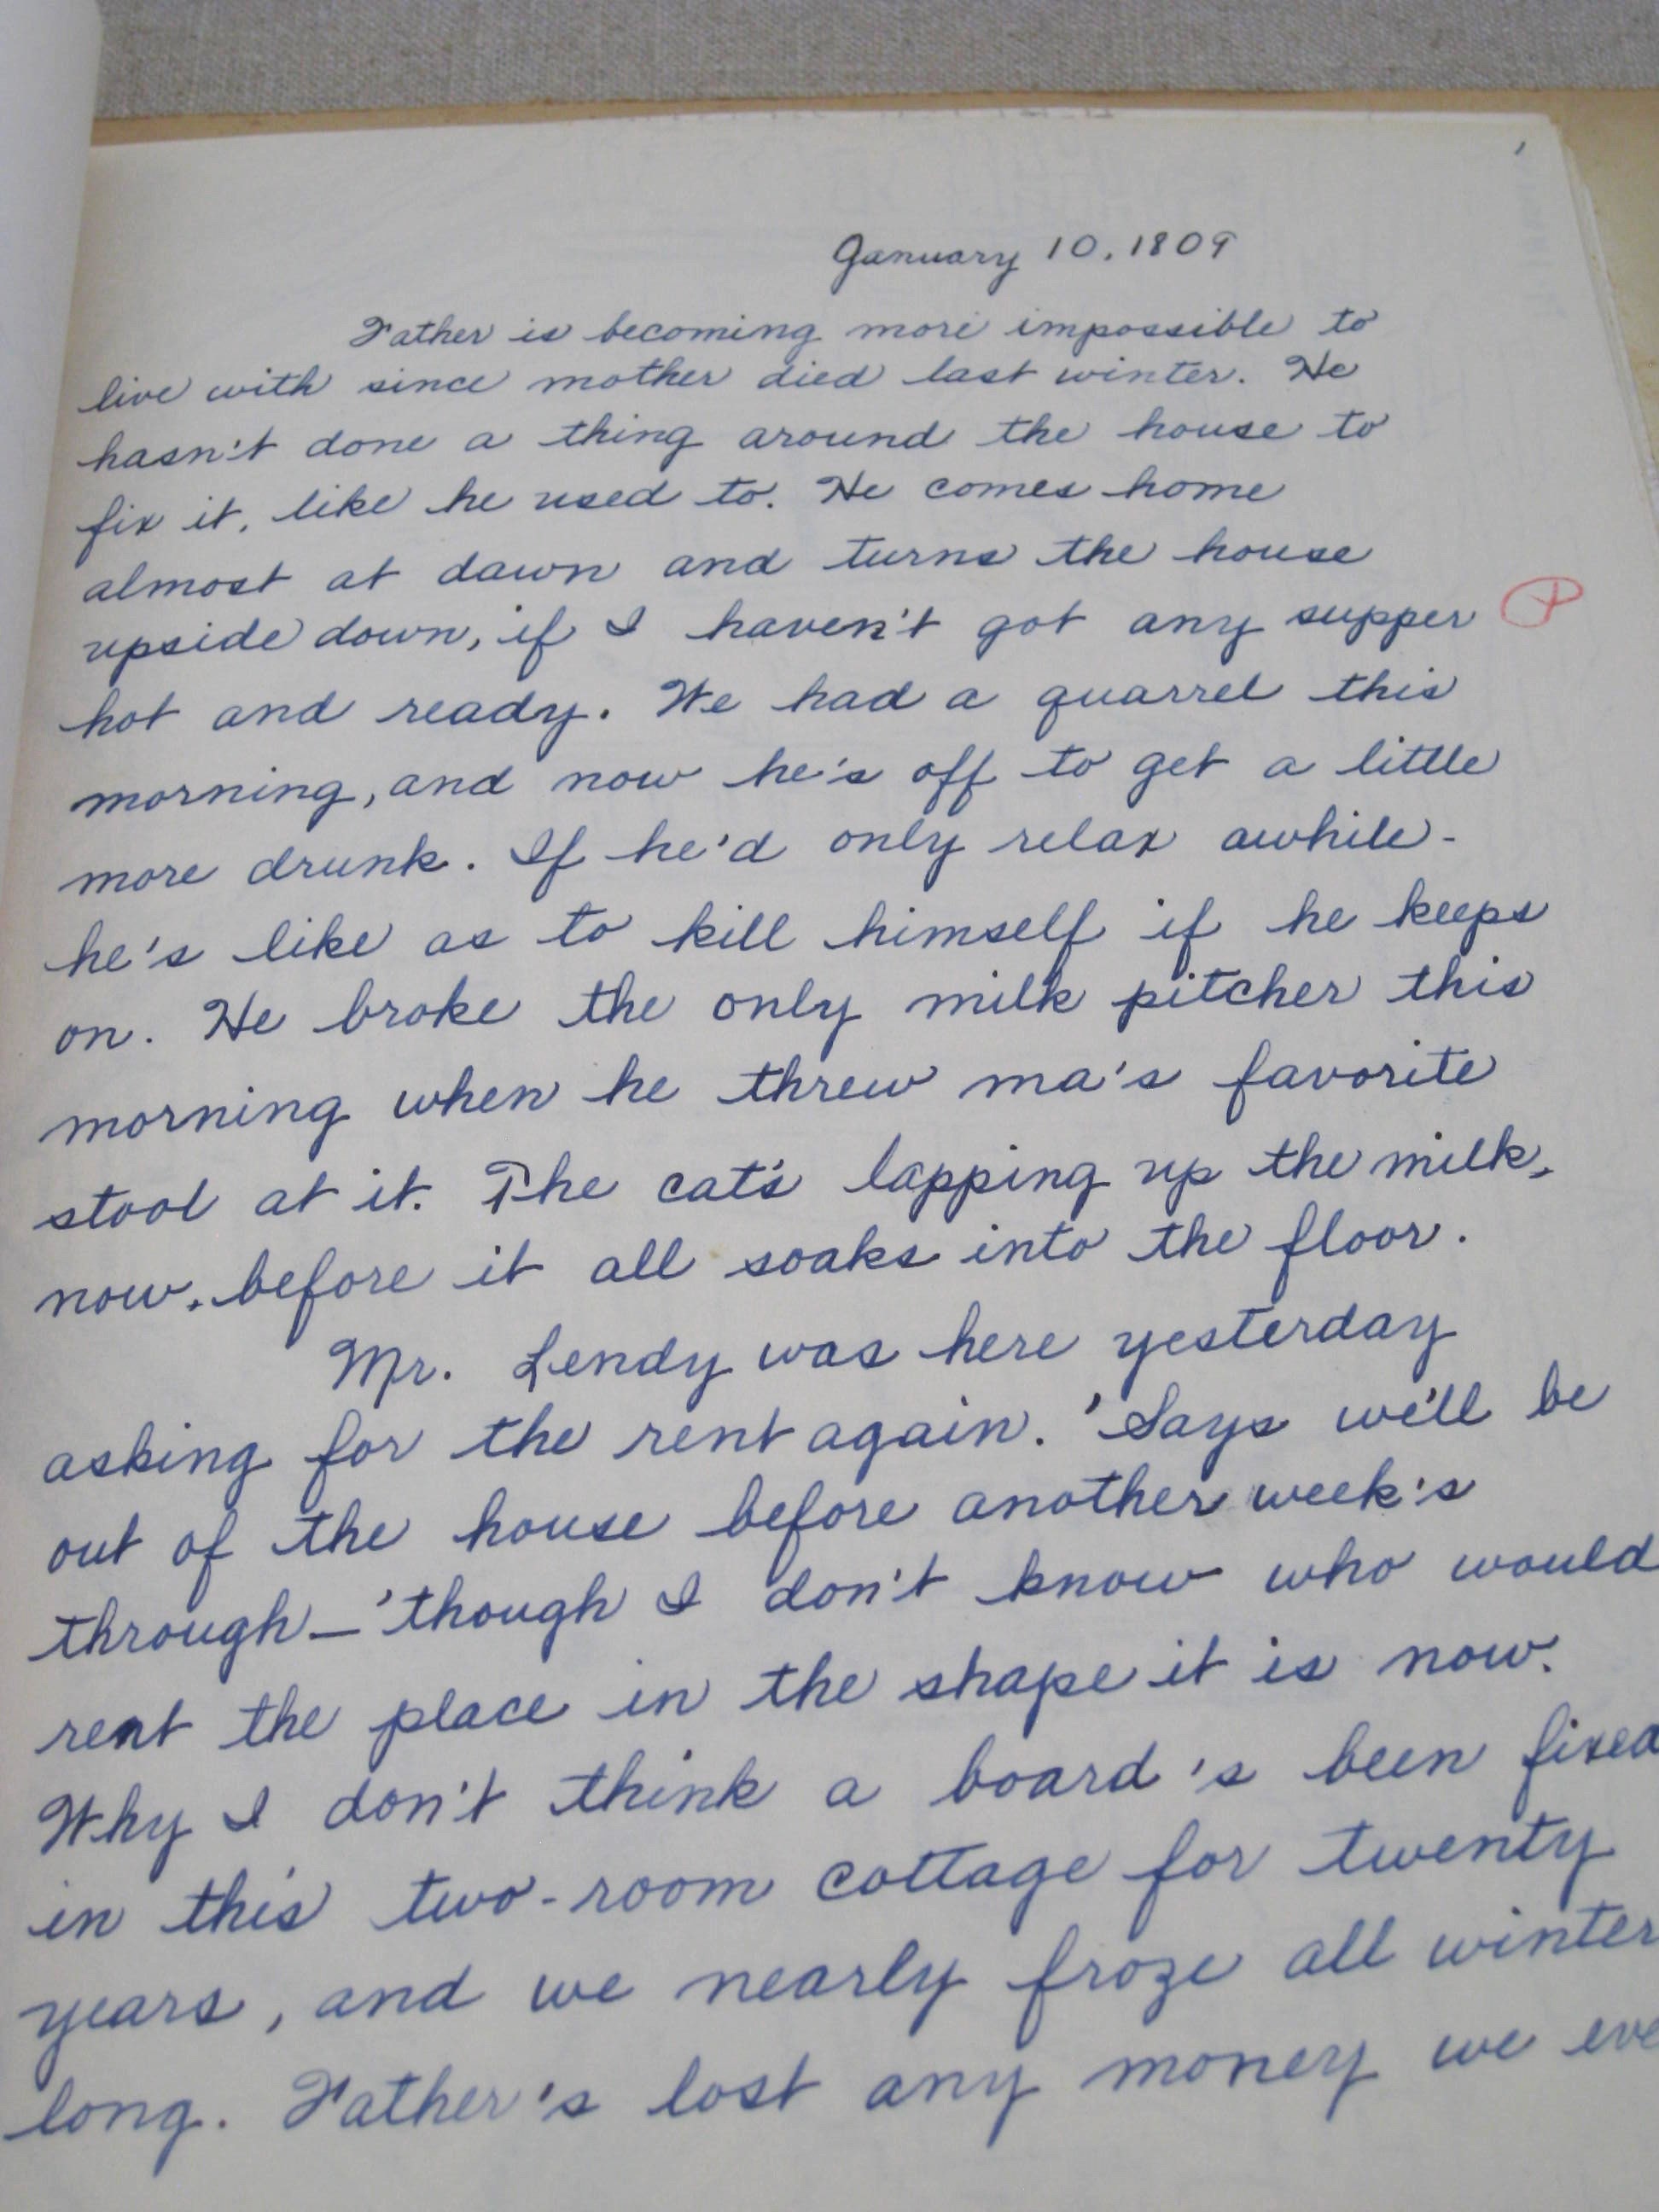 January 10, 1809
Father is becoming more impossible to
live with since mother died last winter. He
hasn't done a thing around the house to
fix it, like he used to. He comes home
almost at dawn and turns the house
upside down, if I haven't got any supper P
hot and ready. We had a quarrel this
morning, and now he's off to get a little
more drunk. If he'd only relax awhile-
he's like as to kill himself if he keeps
on. He broke the only milk pitcher this
morning when he threw ma's favorite
stool at it. The cat's lapping up the milk,
now, before it all soaks into the floor.
Mr. Lendy was here yesterday
asking for the rent again. 'Says we'll be
out of the house before another week's
through—'though I don't know who would
rent the place in the shape it is now.
Why I don't think a board's been fixed
in this two-room cottage for twenty
years, and we nearly froze all winter
long. Father's lost any money we eve